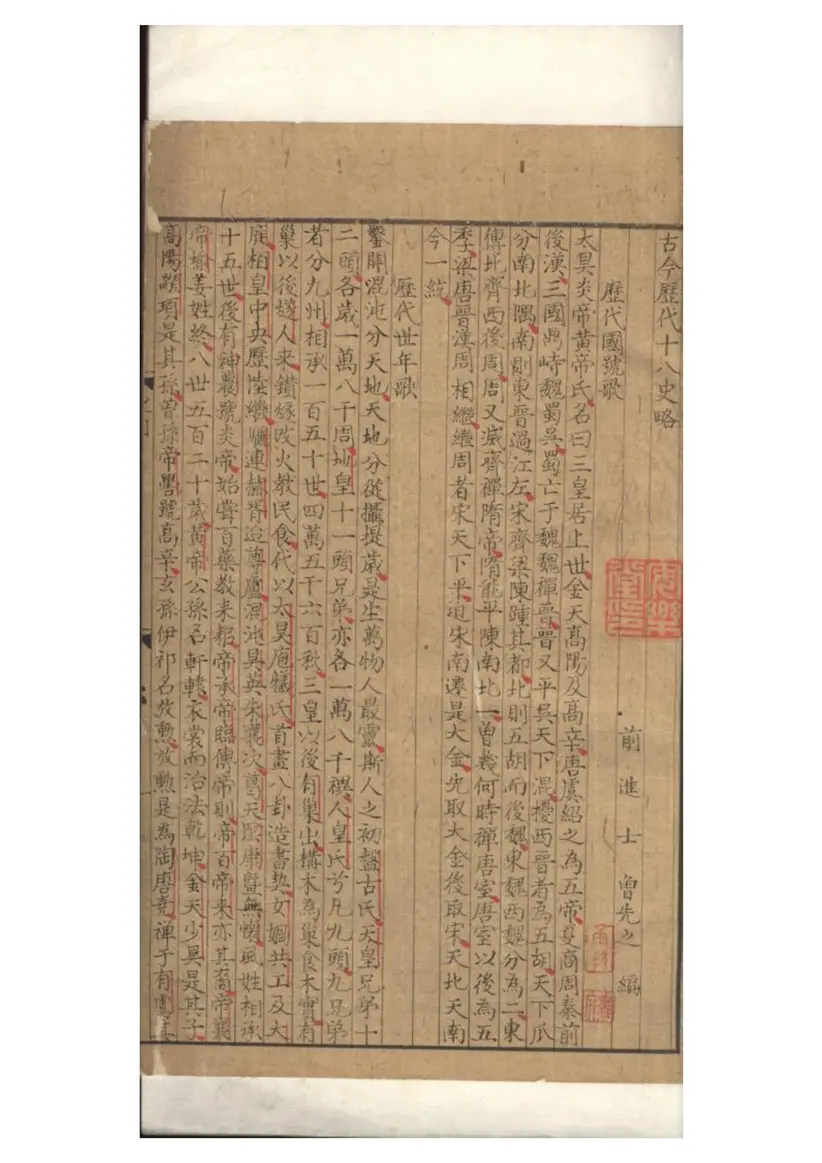 古今歷代十八史略
前進士 曾先之 編
歷代國號歌
太昊炎帝黃帝氏名曰三皇居上世金天高陽及高辛唐虞紹之為五帝夏商周秦前
後漢三國鼎峙魏蜀吳蜀亡于魏魏禪晉晉又平吳天下混擾西晉者為五胡天下瓜
分南北隅南則東晉過江左宋齊梁陳踵其都北則五胡而後魏東魏西魏分為二東
傳北齊西後周周又滅齊禪隋帝隋能平陳南北一曾幾何時禪唐室唐室以後為五
季梁唐晉漢周相繼繼周者宋天下平迨宋南遷是大金先取大金後取宋天北天南
今一統
歷代世年歌
鑿開混沌分天地天地分從攝提歲是生萬物人最靈斯人之初盤古氏天皇兄弟十
二頭各歲一萬八千周地皇十一頭兄弟亦各一萬八千禩人皇氏兮凡九頭九兄弟
者分九州相承一百五十世四萬五千六百秋三皇以後有巢出搆木為巢食木實有
巢以後燧人來鑽燧改火教民食代以太昊庖犧氏首畫八卦造書契女媧共工及大
庭柏皇中央歷陸繼驪連赫胥迨尊盧混沌昊英朱襄次葛天陰康暨無懷風姓相承
十五世後有神農號炎帝始嘗百藥教耒耜帝承帝臨傳帝則帝百帝來亦其裔帝襄
帝榆姜姓終八世五百二十歲黃帝公孫名軒轅衣裳而治法乾坤金天少昊是其子
高陽顓頊是其孫曾孫帝嚳號高辛玄孫伊祁名放勲放勲是為陶唐堯禪于有虞